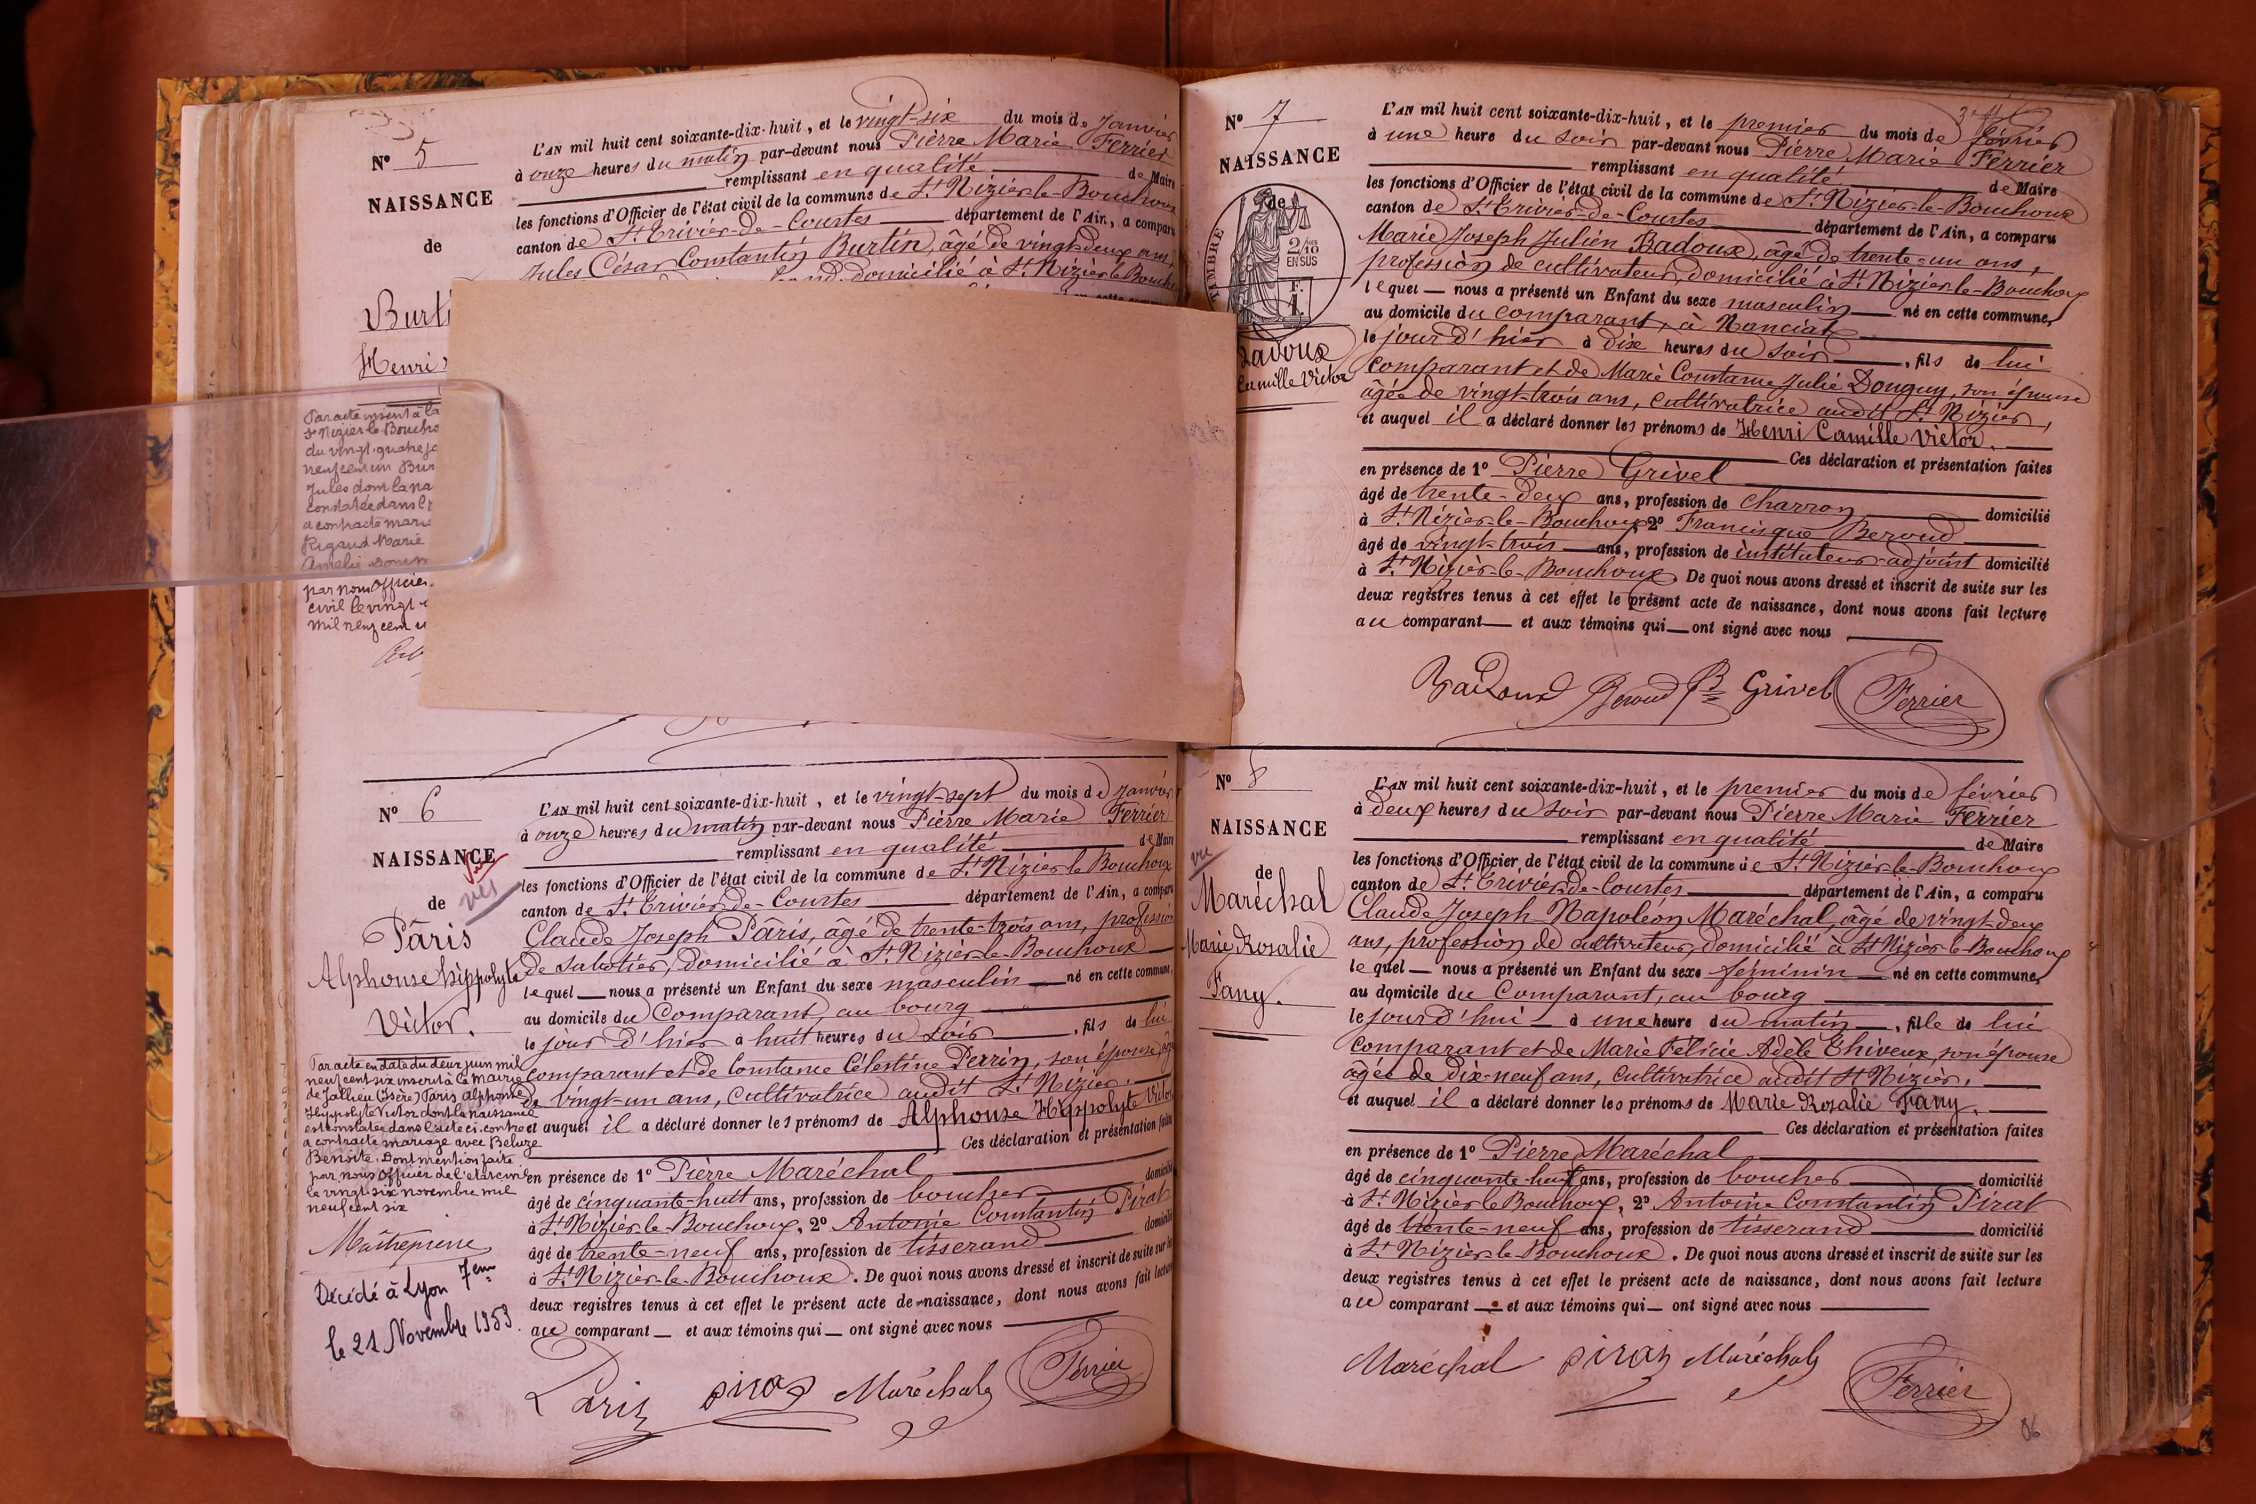 N° 5
NAISSANCE
de
Henri
Par acte inscrit à la
St Nizier-le-Boucho
du vingt-quatre
neuf cent un Bur
Jules dont la na
constatée dans l'
a contracté mari
Rigaud Marie
Amélie
par nous Officier
civil le vingt
mil neuf cent
L'AN mil huit cent soixante-dix-huit, et le vingt-six du mois de Janvier
à onze heures du matin par-devant nous Pierre Marie Ferrier
remplissant en qualité de Maire
les fonctions d'Officier de l'état civil de la commune de St Nizier-le-Bouchoux
canton de St Trivier-de-Courtes département de l'Ain, a comparu
Jules César Constantin Burtin, âgé de vingt-deux ans,
domicilié à St Nizier-le-Bouchoux
N° 6
NAISSANCE
vu
de
Pâris
Alphonse Hippolyte
Victor.
Par acte en date du deux juin mil
neuf cent six inscrit à la Mairie
de Jallieu (Isère) Pâris Alphonse
Hippolyte Victor dont la naissance
est constatée dans l'acte ci-contre
a contracté mariage avec Beluze
Benoite. Dont mention faite
par nous Officier de l'état civil
le vingt-six novembre mil
neuf cent six
Maîtrepierre
Décédé à Lyon 7em
le 21 Novembre 1953.
L'AN mil huit cent soixante-dix-huit, et le vingt-sept du mois de Janvier
à onze heures du matin par-devant nous Pierre Marie Ferrier
remplissant en qualité de Maire
les fonctions d'Officier de l'état civil de la commune de St Nizier-le-Bouchoux
canton de St Trivier-de-Courtes département de l'Ain, a comparu
Claude Joseph Pâris, âgé de trente-trois ans, profession
de sabotier, domicilié à St Nizier-le-Bouchoux
lequel nous a présenté un Enfant du sexe masculin né en cette commune,
au domicile du Comparant, au bourg
le jour d'hier à huit heures du soir, fils de lui
comparant et de Constance Célestine Perrin, son épouse, âgée
de vingt-un ans, cultivatrice audit St Nizier.
et auquel il a déclaré donner les prénoms de Alphonse Hippolyte Victor
Ces déclaration et présentation faites
en présence de 1° Pierre Maréchal
âgé de cinquante-huit ans, profession de boucher domicilié
à St Nizier-le-Bouchoux, 2° Antoine Constantin Pirat
âgé de trente-neuf ans, profession de tisserand domicilié
à St Nizier-le-Bouchoux. De quoi nous avons dressé et inscrit de suite sur les
deux registres tenus à cet effet le présent acte de naissance, dont nous avons fait lecture
au comparant et aux témoins qui ont signé avec nous
Paris Pirat Maréchal Ferrier
N° 7
NAISSANCE
de
TIMBRE
2/10
EN SUS
F.
1.
Badoux
Camille Victor
L'AN mil huit cent soixante-dix-huit, et le premier du mois de février
à une heure du soir par-devant nous Pierre Marie Ferrier
remplissant en qualité de Maire
les fonctions d'Officier de l'état civil de la commune de St Nizier-le-Bouchoux
canton de St Trivier-de-Courtes département de l'Ain, a comparu
Marie Joseph Julien Badoux, âgé de trente-un ans,
profession de cultivateur, domicilié à St Nizier-le-Bouchoux
lequel nous a présenté un Enfant du sexe masculin né en cette commune,
au domicile du comparant, à Nanciat
le jour d'hier à dix heures du soir, fils de lui
comparant et de Marie Constance Julie Donguy, son épouse
âgée de vingt-trois ans, cultivatrice audit St Nizier,
et auquel il a déclaré donner les prénoms de Henri Camille Victor.
Ces déclaration et présentation faites
en présence de 1° Pierre Grivel
âgé de trente-deux ans, profession de charron domicilié
à St Nizier-le-Bouchoux, 2° Francisque Beroud
âgé de vingt-trois ans, profession de instituteur-adjoint domicilié
à St Nizier-le-Bouchoux. De quoi nous avons dressé et inscrit de suite sur les
deux registres tenus à cet effet le présent acte de naissance, dont nous avons fait lecture
au comparant et aux témoins qui ont signé avec nous
Badoux Beroud Grivel Ferrier
N° 8
NAISSANCE
vu
de
Maréchal
Marie Rosalie
Fany.
L'AN mil huit cent soixante-dix-huit, et le premier du mois de février
à deux heures du soir par-devant nous Pierre Marie Ferrier
remplissant en qualité de Maire
les fonctions d'Officier de l'état civil de la commune de St Nizier-le-Bouchoux
canton de St Trivier-de-Courtes département de l'Ain, a comparu
Claude Joseph Napoléon Maréchal, âgé de vingt-deux
ans, profession de cultivateur, domicilié à St Nizier-le-Bouchoux
lequel nous a présenté un Enfant du sexe féminin né en cette commune,
au domicile du Comparant, au bourg
le jour d'hui à une heure du matin, fille de lui
comparant et de Marie Félicie Adèle Thiveux, son épouse
âgée de dix-neuf ans, cultivatrice audit St Nizier.
et auquel il a déclaré donner les prénoms de Marie Rosalie Fany.
Ces déclaration et présentation faites
en présence de 1° Pierre Maréchal
âgé de cinquante-huit ans, profession de boucher domicilié
à St Nizier-le-Bouchoux, 2° Antoine Constantin Pirat
âgé de trente-neuf ans, profession de tisserand domicilié
à St Nizier-le-Bouchoux. De quoi nous avons dressé et inscrit de suite sur les
deux registres tenus à cet effet le présent acte de naissance, dont nous avons fait lecture
au comparant et aux témoins qui ont signé avec nous
Maréchal Pirat Maréchal Ferrier